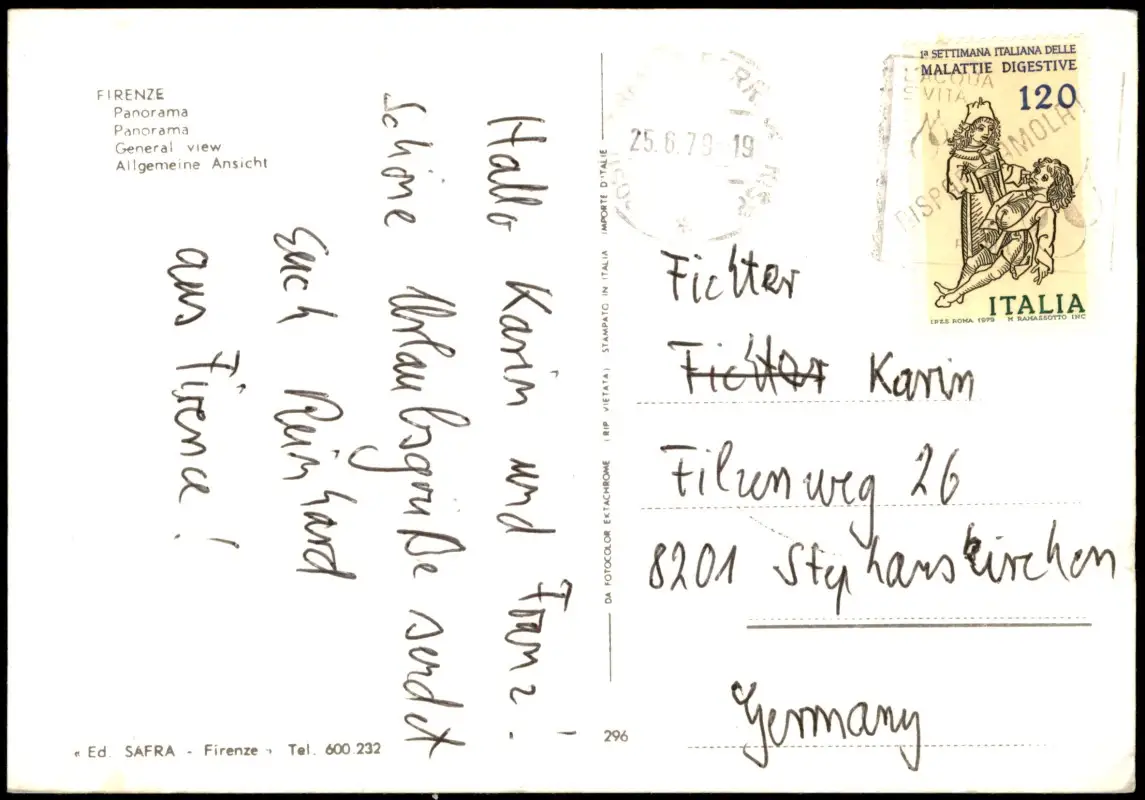 FIRENZE
Panorama
Panorama
General view
Allgemeine Ansicht
Hallo Karin und Franz!
Schöne Urlaubsgrüße sendet
Euch Reinhard
aus Firence!
« Ed. SAFRA - Firenze » Tel. 600.232
DA FOTOCOLOR EKTACHROME (RIP VIETATA) STAMPATO IN ITALIA IMPORTE D'ITALIE
296
25.6.79-19
L'ACQUA
E' VITA
1ª SETTIMANA ITALIANA DELLE
MALATTIE DIGESTIVE
120
ITALIA
I.P.Z.S. ROMA 1979 M. RAMASSOTTO INC.
Fichter
Fichter Karin
Filzenweg 26
8201 Stephanskirchen
Germany